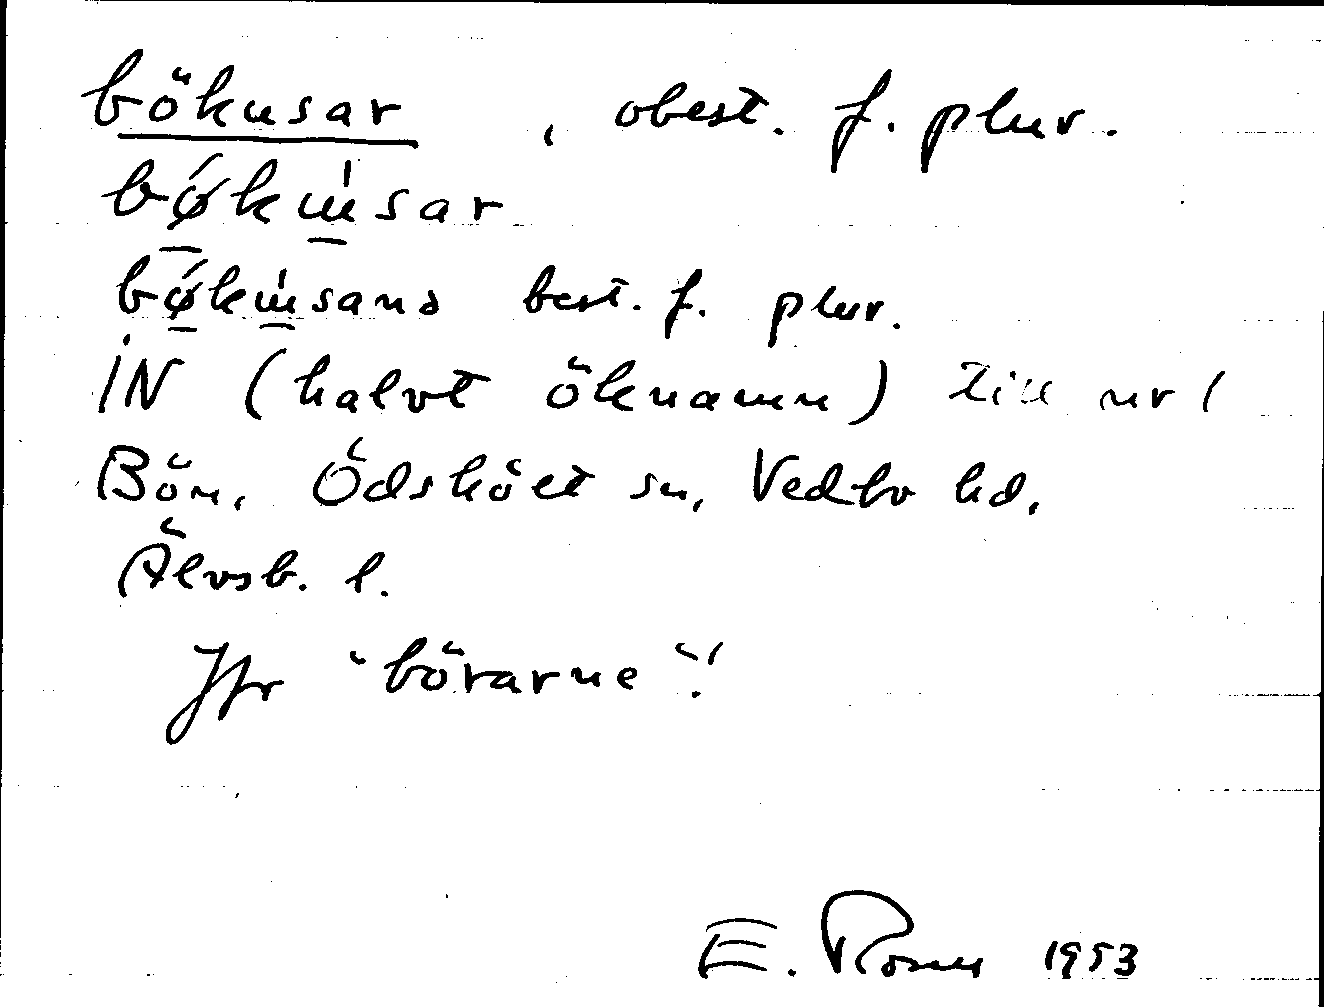 bökusar , obest. f. plur.
bǿ̠kɯ̠́sar
bǿ̠kɯ̠́sana best. f. plur.
IN (halvt öknamn) till nr 1
Bön, Ödskölt sn, Vedbo hd,
Älvsb. l.
Jfr "börarne"!
E. 1953